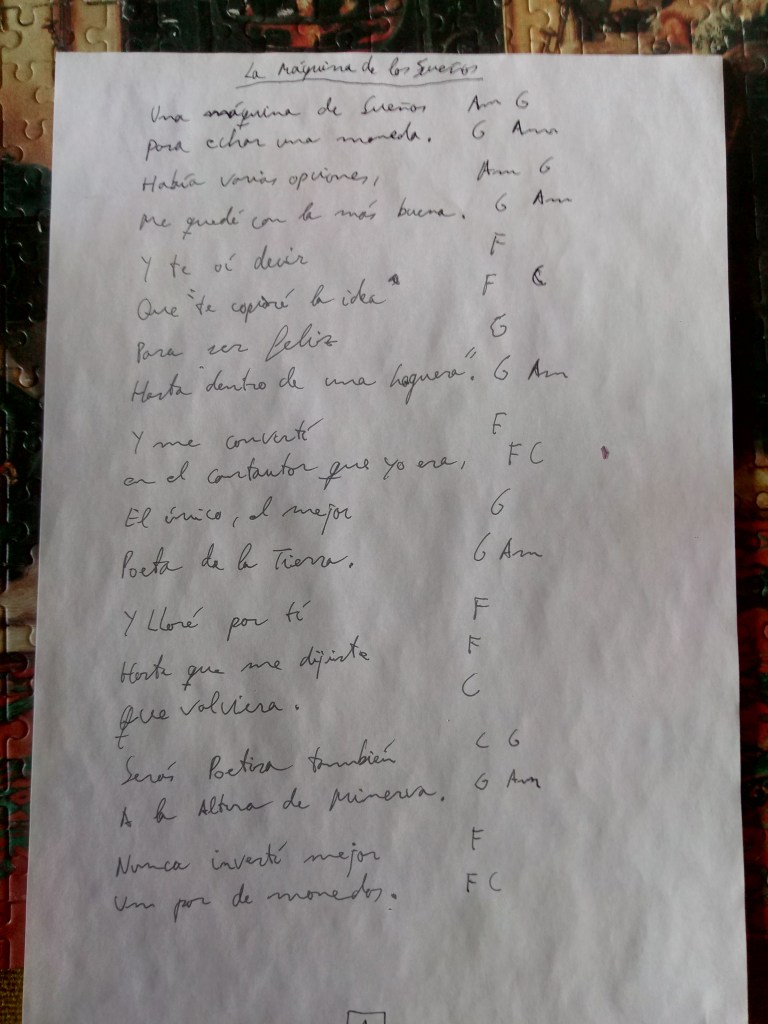 La Máquina de los Sueños
Una máquina de Sueños Am G
para echar una moneda. G Am
Había varias opciones, Am G
Me quedé con la más buena. G Am
Y te oí decir F
Que "te copiaré la idea" F C
Para ser feliz G
Hasta dentro de una hoguera". G Am
Y me convertí F
en el cantautor que yo era, F C
El único, el mejor G
Poeta de la Tierra. G Am
Y Lloré por ti F
Hasta que me dijiste F
Que volviera. C
Serás Poetisa también C G
A la Altura de Minerva. G Am
Nunca invertí mejor F
Un par de monedas. F C